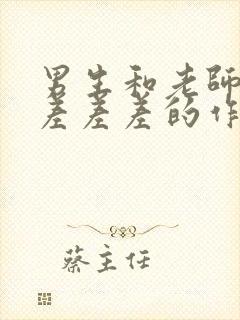 男生和老师
差差差的作
蔡主任